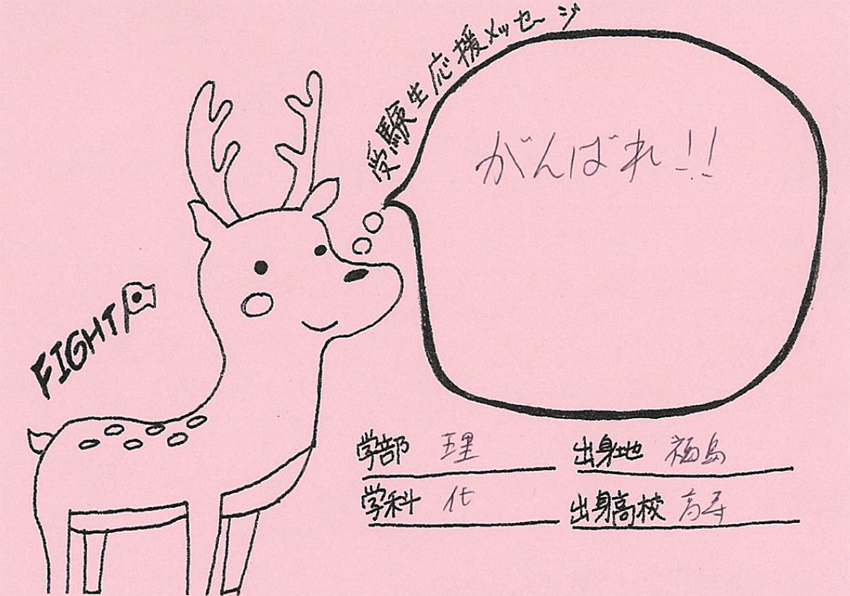 受験生応援メッセージ
がんばれ!!
FIGHT
学部 理
出身地 福島
学科 化
出身高校